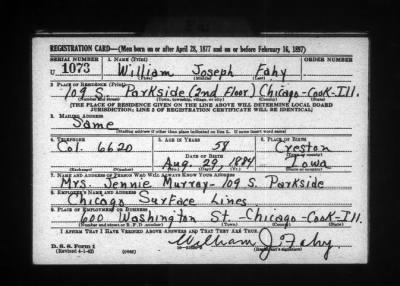 Fahy
REGISTRATION CARD—(Men born on or after April 28, 1877 and on or before February 16, 1897)
SERIAL NUMBER 1. NAME (Print) ORDER NUMBER
U 1073 William Joseph Fahy
(First) (Middle) (Last)
2. PLACE OF RESIDENCE (Print)
109 S. Parkside (2nd Floor) Chicago-Cook-Ill.
(Number and street) (Town, township, village, or city) (County) (State)
[THE PLACE OF RESIDENCE GIVEN ON THE LINE ABOVE WILL DETERMINE LOCAL BOARD
JURISDICTION; LINE 2 OF REGISTRATION CERTIFICATE WILL BE IDENTICAL]
3. MAILING ADDRESS
Same
[Mailing address if other than place indicated on line 2. If same insert word same]
4. TELEPHONE 5. AGE IN YEARS 6. PLACE OF BIRTH
Col. 6620 58 Creston
DATE OF BIRTH (Town or county)
Aug. 29, 1884 Iowa
7. NAME AND ADDRESS OF PERSON WHO WILL ALWAYS KNOW YOUR ADDRESS
Mrs. Jennie Murray-109 S. Parkside
8. EMPLOYER'S NAME AND ADDRESS
Chicago Surface Lines
9. PLACE OF EMPLOYMENT OR BUSINESS
600 Washington St.-Chicago-Cook-Ill.
(Number and street or R. F. D. number) (Town) (County) (State)
I AFFIRM THAT I HAVE VERIFIED ABOVE ANSWERS AND THAT THEY ARE TRUE.
D. S. S. Form 1 William J. Fahy
(Revised 4-1-42) (over) (Registrant's signature)